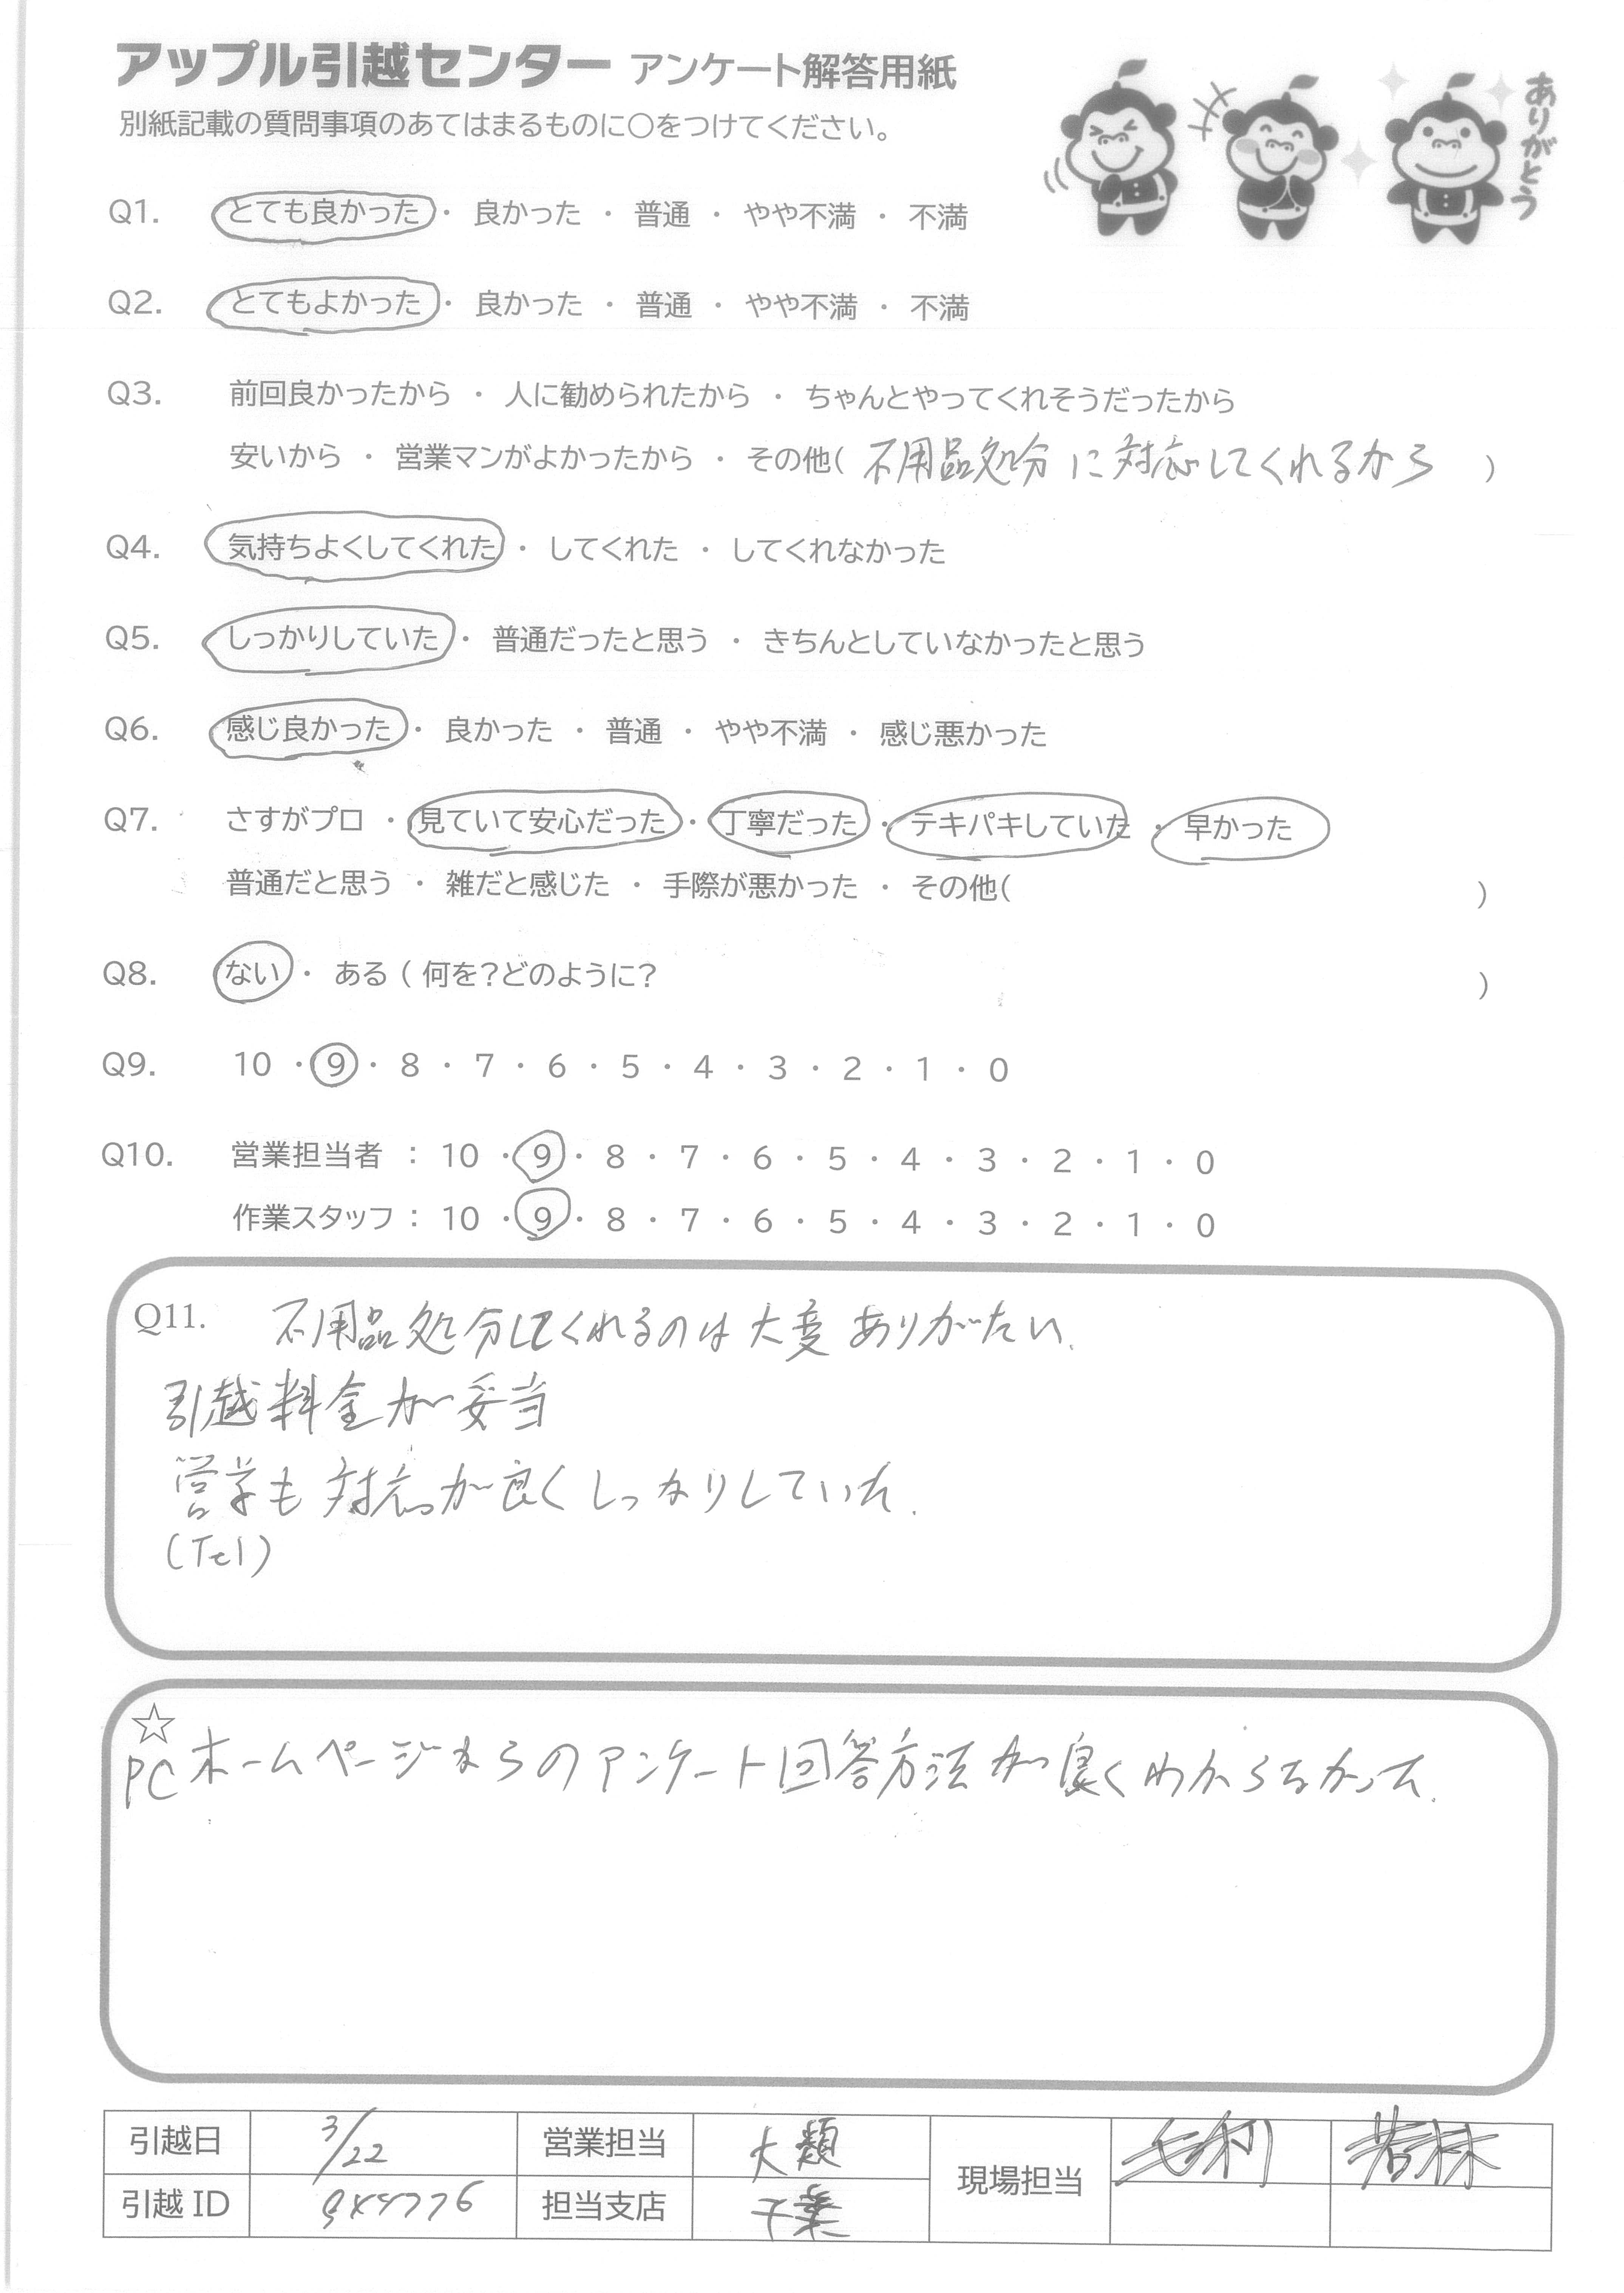 アップル引越センター アンケート解答用紙
別紙記載の質問事項のあてはまるものに○をつけてください。
ありがとう
Q1. とても良かった ・ 良かった ・ 普通 ・ やや不満 ・ 不満
Q2. とてもよかった ・ 良かった ・ 普通 ・ やや不満 ・ 不満
Q3. 前回良かったから ・ 人に勧められたから ・ ちゃんとやってくれそうだったから
安いから ・ 営業マンがよかったから ・ その他( 不用品処分に対応してくれるから )
Q4. 気持ちよくしてくれた ・ してくれた ・ してくれなかった
Q5. しっかりしていた ・ 普通だったと思う ・ きちんとしていなかったと思う
Q6. 感じ良かった ・ 良かった ・ 普通 ・ やや不満 ・ 感じ悪かった
Q7. さすがプロ ・ 見ていて安心だった ・ 丁寧だった ・ テキパキしていた ・ 早かった
普通だと思う ・ 雑だと感じた ・ 手際が悪かった ・ その他( )
Q8. ない ・ ある ( 何を?どのように? )
Q9. 10 ・ 9 ・ 8 ・ 7 ・ 6 ・ 5 ・ 4 ・ 3 ・ 2 ・ 1 ・ 0
Q10. 営業担当者 : 10 ・ 9 ・ 8 ・ 7 ・ 6 ・ 5 ・ 4 ・ 3 ・ 2 ・ 1 ・ 0
作業スタッフ : 10 ・ 9 ・ 8 ・ 7 ・ 6 ・ 5 ・ 4 ・ 3 ・ 2 ・ 1 ・ 0
Q11. 不用品処分してくれるのは大変ありがたい.
引越料金が妥当
営業も対応が良くしっかりしていた.
(Tel)
☆
PCホームページからのアンケート回答方法が良くわからなかった.
引越日 3/22 営業担当 大類 現場担当 毛利 若林
引越ID 担当支店 千葉